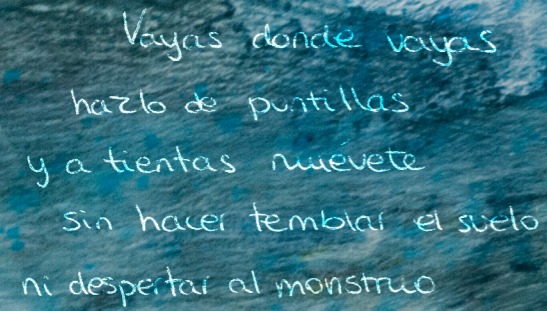 Vayas donde vayas
hazlo de puntillas
y a tientas muévete
sin hacer temblar el suelo
ni despertar al monstruo